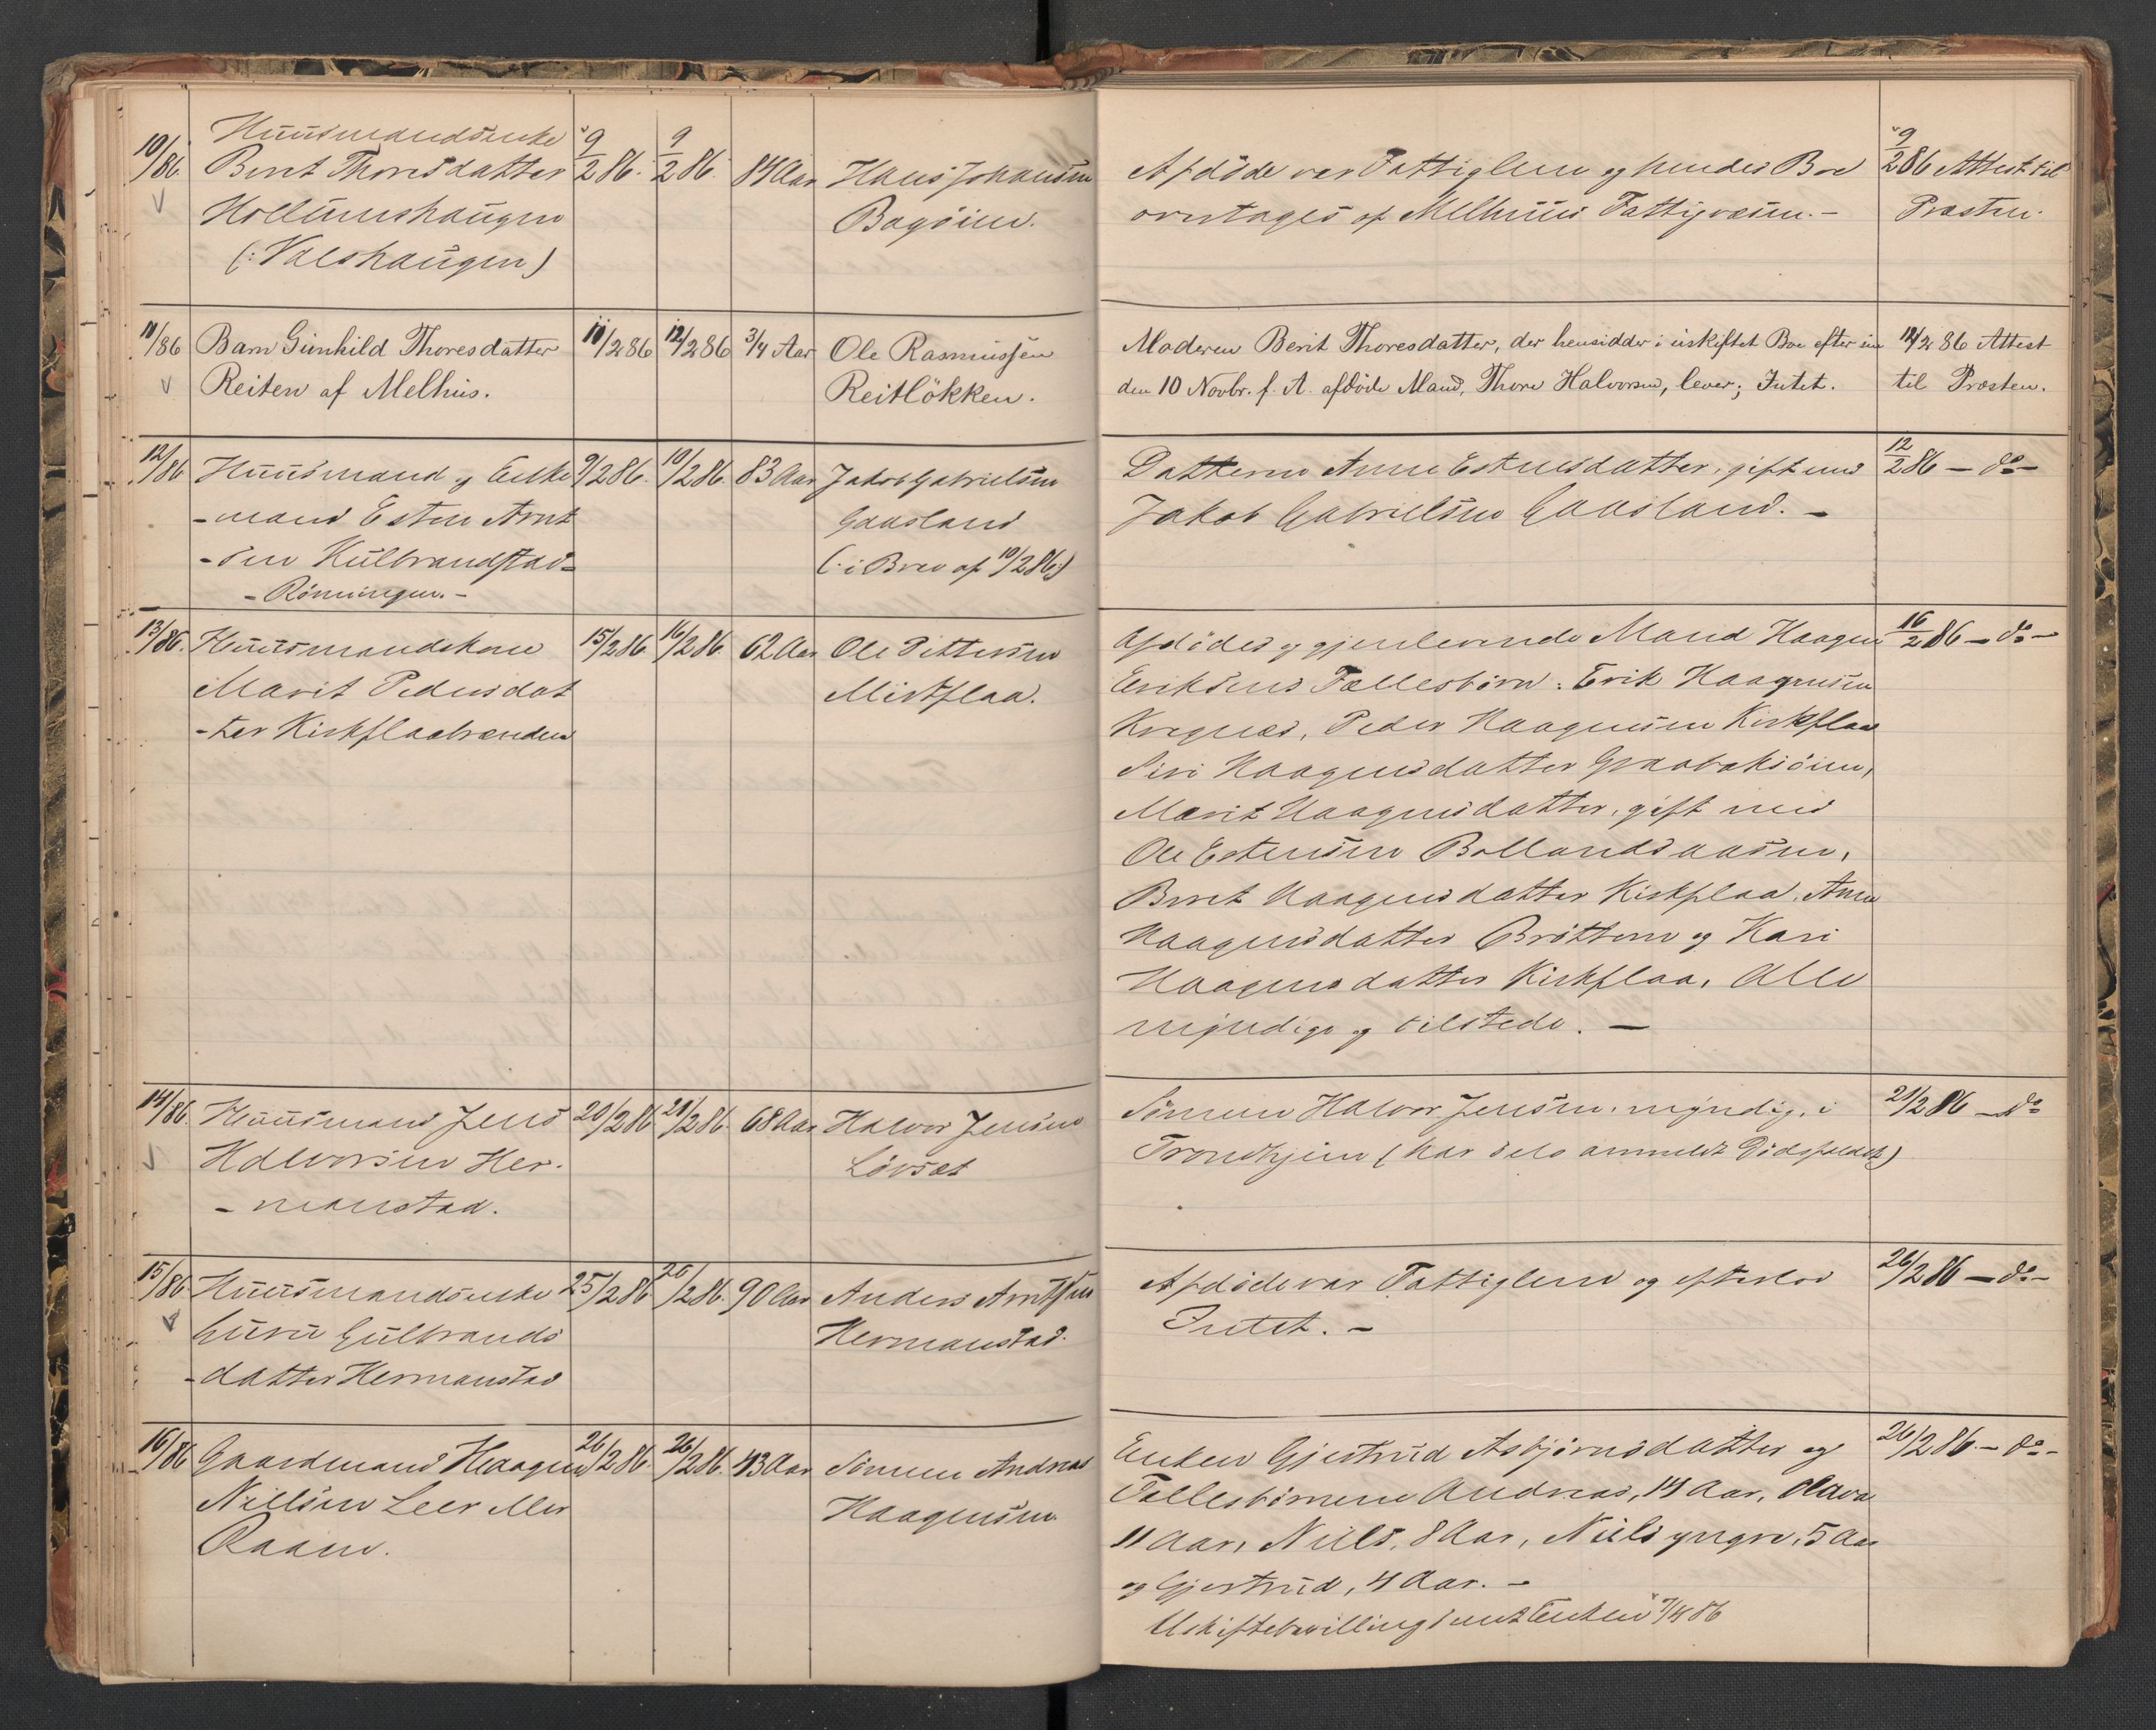 10/86. Huusmandsenke
Berit Thoresdatter 9/2 86. 9/2 86. 84 Aar Hans Johansen
Hollumshaugen Bagøien.
(: Valshaugen)
Afdøde var Fattiglem og hendes Bo 9/2 86 Attest til
overtages af Melhuus Fattigvæsen. – Præsten.
11/86 Barn Gunhild Thoresdatter 10/2 86 12/2 86 3/4 Aar Ole Rasmussen
Reiten af Melhus. Reitløkken.
Moderen Berit Thoresdatter, der hensidder i uskiftet Bo efter sin 12/2 86 Attest
den 10 Novbr. f. A. afdøde Mand, Thore Halvorsen, lever; Intet. til Præsten.
12/86 Huusmand og Enke 9/2 86. 10/2 86. 83 Aar Jakob Gabrielsen
-mand Esten Arnt Gaasland
-sen Kulbrandstad- (: i Brev af 10/2 86:)
-Rønningen. –
Datteren Anne Estensdatter, gift med 12/2 86 – do –
Jakob Gabrielsen Gaasland. –
13/86. Huusmandskone 15/2 86 16/2 86. 62 Aar Ole Pettersen
Marit Pedersdat Kirkflaa.
-ter Kirkflaabrænden
Afdødes og gjenlevende Mand Haagen 16/2 86 – do –
Eriksens Fællesbørn: Erik Haagensen
Kregnæs, Peder Haagensen Kirkflaa
Siri Haagensdatter Graabakøien,
Marit Haagensdatter, gift med
Ole Estensen Bollandsaasen,
Berit Haagensdatter Kirkflaa, Anne
Haagensdatter Brøttem og Kari
Haagensdatter Kirkflaa, Alle
myndige og tilstede. –
14/86. Huusmand Jens 20/2 86 21/2 86. 68 Aar Halvor Jensen
Halvorsen Her- Løvset
-manstad.
Sønnen Halvor Jensen, myndig, i 21/2 86 – do
Trondhjem (har selv anmeldt Dødsfaldet)
15/86 Huusmandsenke 25/2 86 26/2 86. 90 Aar Anders Arntsen
Guru Gulbrands Hermanstad.
-datter Hermanstad
Afdøde var Fattiglem og efterlod 26/2 86 – do –
Intet. –
16/86 Gaardmand Haagen 26/2 86. 26/2 86. 43 Aar Sønnen Andreas
Nielsen Leer Mer Haagensen
Raaen.
Enken Gjertrud Asbjørnsdatter og 26/2 86. – do –
Fællesbørnene Andreas, 14 Aar, Olava
11 Aar, Niels, 8 Aar, Niels yngre, 5 Aar
og Gjertrud, 4 Aar. –
Uskiftebevilling sendt Enken 7/4 86